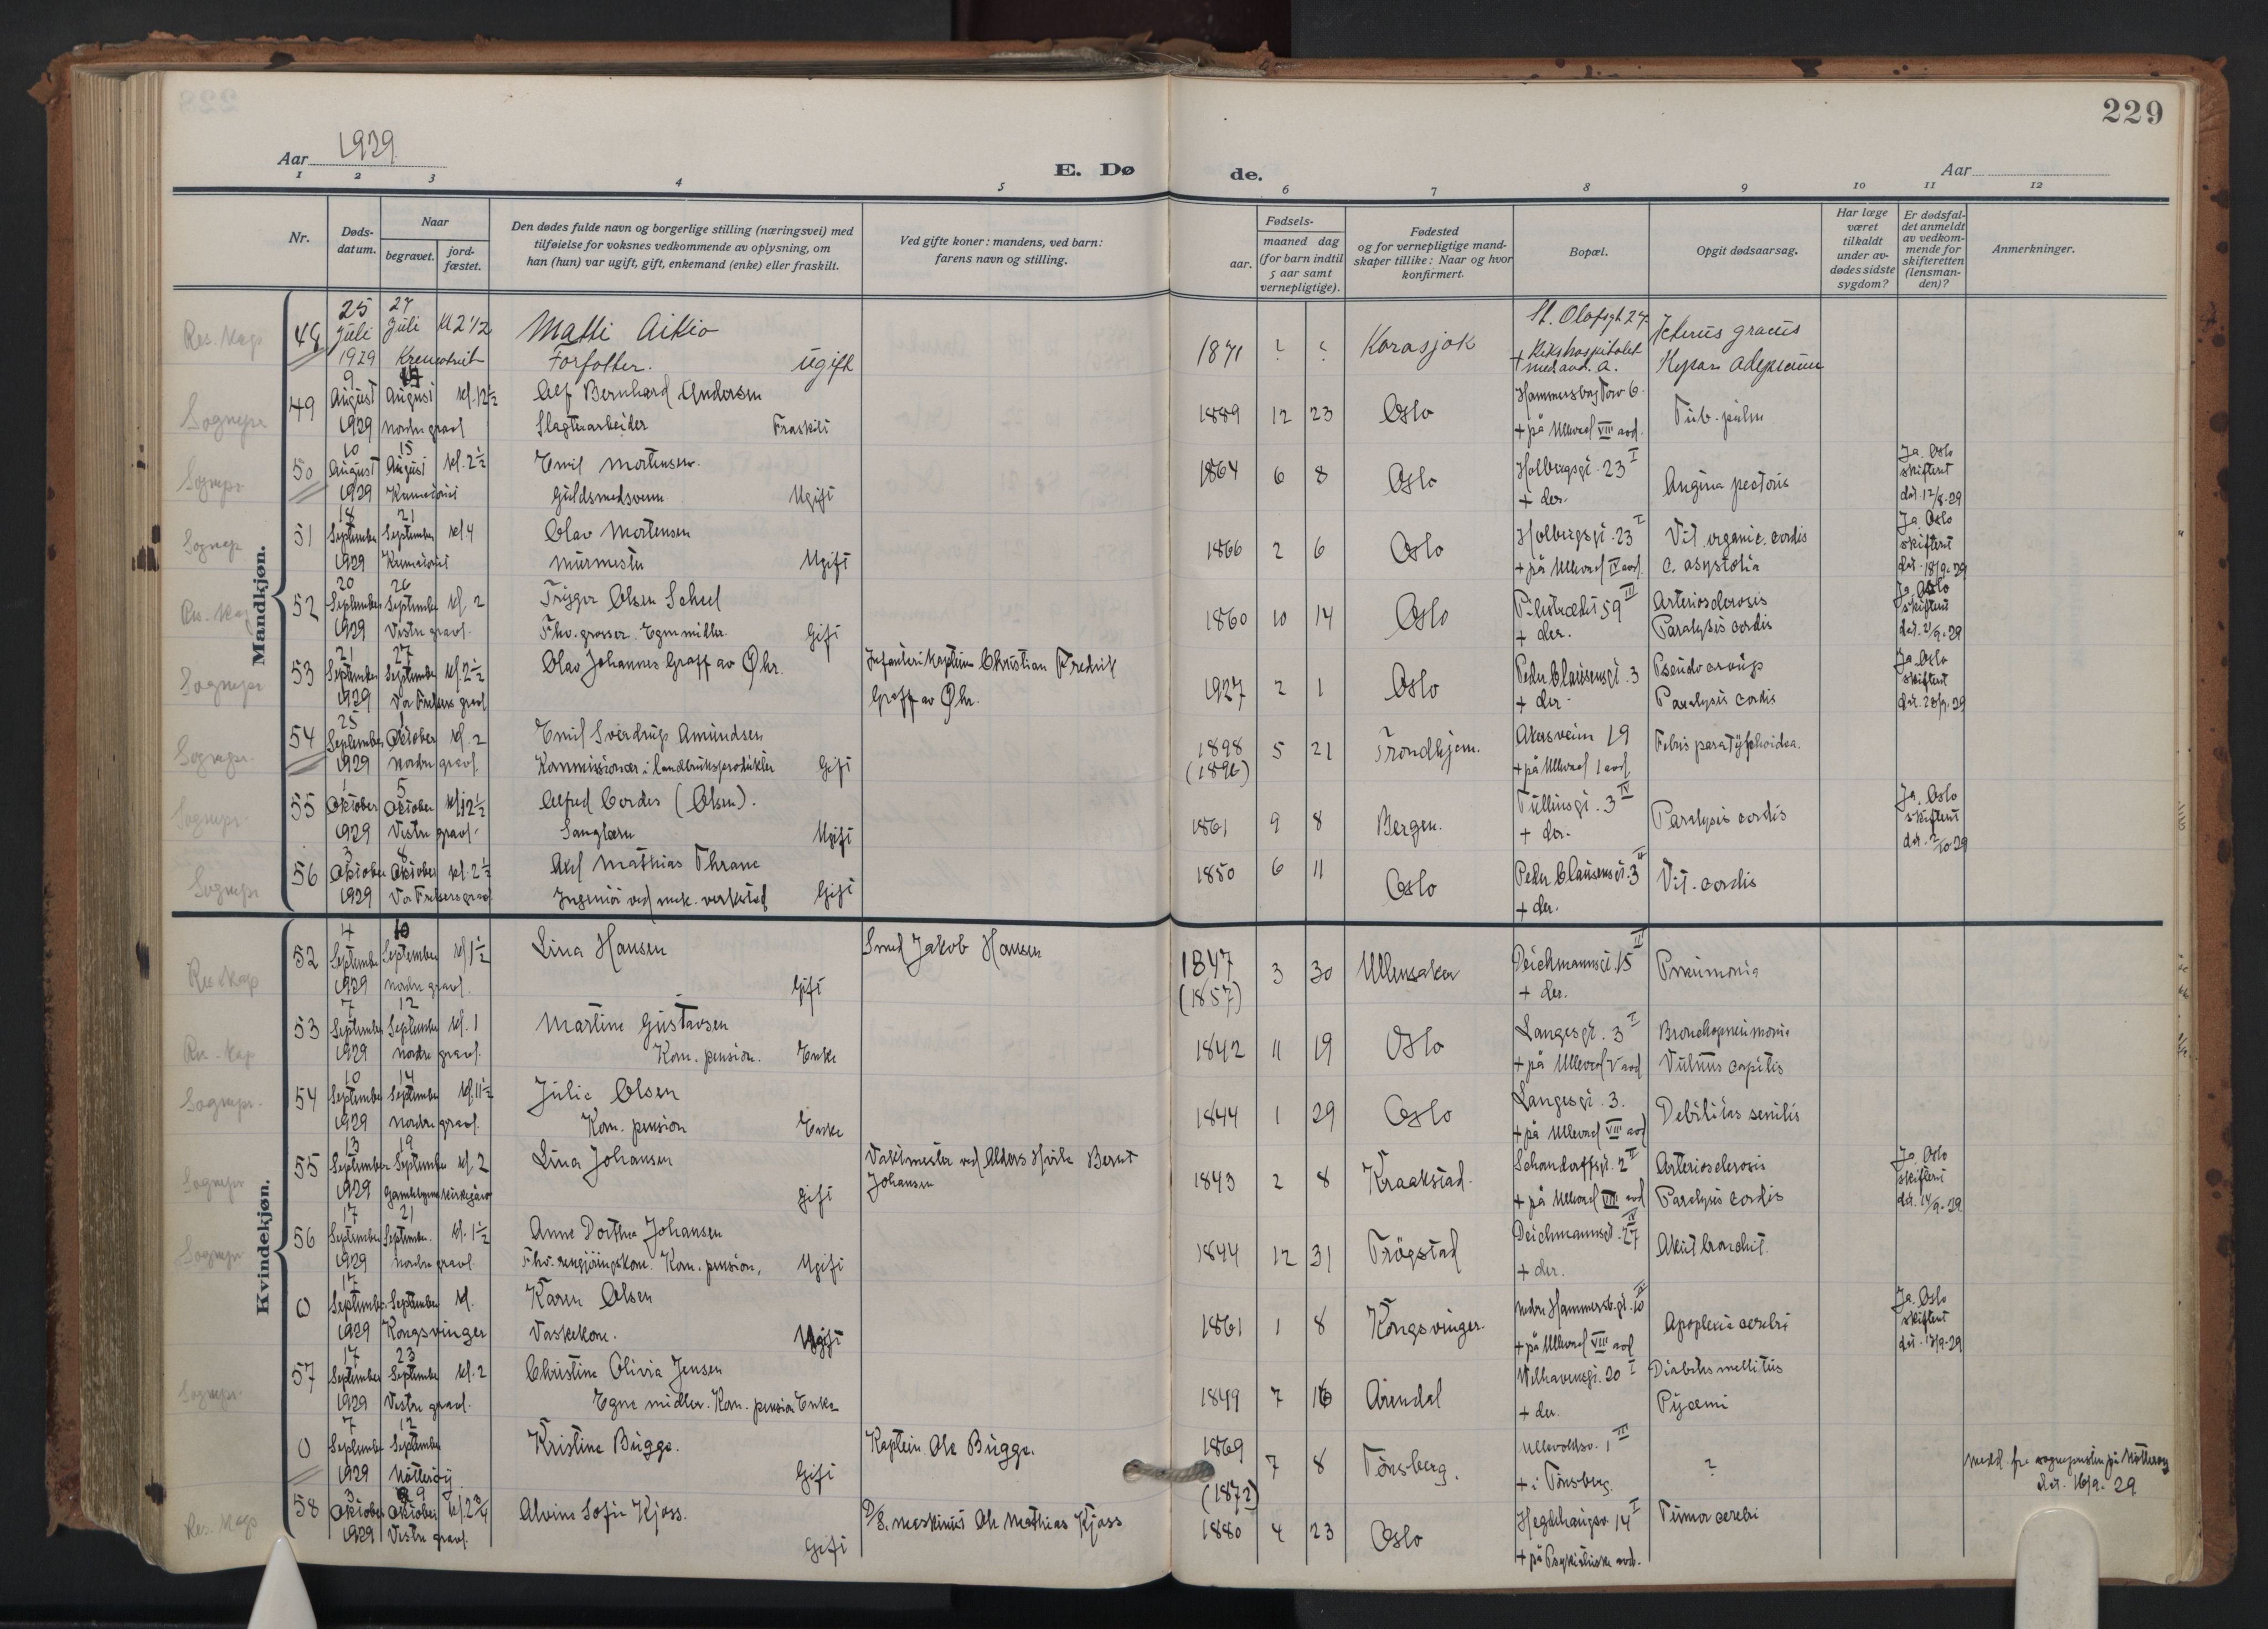 229
Aar 1929.
E. Dø de.
Aar
1 2 3 4 5 6 7 8 9 10 11 12
Nr.
Døds-datum.
Naar
begravet.
jord-fæstet.
Den dødes fulde navn og borgerlige stilling (næringsvei) med
tilføielse for voksnes vedkommende av oplysning, om
han (hun) var ugift, gift, enkemand (enke) eller fraskilt.
Ved gifte koner: mandens, ved barn:
farens navn og stilling.
Fødsels-
aar.
maaned dag
(for barn indtil
5 aar samt
vernepligtige).
Fødested
og for vernepligtige mand-
skaper tillike: Naar og hvor
konfirmert.
Bopæl.
Opgit dødsaarsag.
Har læge
været
tilkaldt
under av-
dødes sidste
sygdom?
Er dødsfal-
det anmeldt
av vedkom-
mende for
skifteretten
(lensman-
den)?
Anmerkninger.
Mandkjøn.
Res. Kap
25 27
Juli Juli kl 2 1/2 Matti Aikio 1871 ? ? Karasjok St. Olafsgt 27
1929 Forfatter. ugift + Rikshospitalet med. avd. A.
Sognepr
9
49 August August kl. 12 1/2 Alf Bernhard Andersen 1889 12 23 Oslo
1929 nordre gravl. Slagteriarbeider Fraskilt + på Ullevaal VIII avd. Tub. pulm
Sognepr
10 15
50 August August kl. 2 1/2 Emil Mortensen. 1864 6 8 Oslo Holbergsgt. 23 I Angina pectoris Ja. Oslo
1929 Krematoriet Guldsmedsvenn Ugift + der. skifterett
dat. 12/8-29
Sognepr
18 21
51 September September kl 4 Olav Mortensen 1866 2 6 Oslo Holbergsgt. 23 I Vit. organic. cordis Ja. Oslo
1929 Krematoriet murmester Ugift + på Ullevaal IV avd. c. asystolia skifterett
dat. 18/9-29
Res. Kap
20 26
52 September September kl. 2 Trygve Olsen Scheel 1860 10 14 Oslo Pilestrædet 59 III Arteriosclerosis Ja. Oslo
1929 Vestre gravl. Fhv. grosser. Egne midler. Gift + der. Paralysis cordis skifterett
dat. 21/9-29
Sognepr
21 27
53 September September kl. 2 1/2 Olav Johannes Graff av Øhr. Infanterikaptein Christian Fredrik 1927 2 1 Oslo Peder Claussensgt. 3 Pseudocroup Ja. Oslo
1929 Vor Frelsers gravl Graff av Øhr. + der. Paralysis cordis skifterett
dat. 23/9-29
Sognepr.
25 1
54 September Oktober kl. 2 Emil Sverdrup Amundsen 1898 5 21 Trondhjem. Akersveien 19 Febris paratyphoidea.
1929 nordre gravl. Kommissionær i landbruksprodukter Gift (1896) + på Ullevaal I avd.
Sognepr.
1 5
55 Oktober Oktober kl. 12 1/2 Alfred Cordes (Olsen). 1861 9 8 Bergen. Tullinsgt. 3 IV Paralysis cordis Ja. Oslo
1929 Vestre gravl. Sanglærer Ugift + der. skifterett
dat. 2/10-29
Sognepr
3 8
56 Oktober Oktober kl. 2 1/2 Axel Mathias Thrane 1850 6 11 Oslo Peder Claussensgt. 3 II Vit. cordis
1929 Vor Frelsers gravl Ingeniør ved mek. verksted Gift + der.
Kvindekjøn.
Res Kap
4 10
52 September September kl 1 1/2 Lina Hansen Smed Jakob Hansen 1847 3 30 Ullensaker Deichmannsgt. 15 II Pneumonia
1929 nordre gravl. Gift (1857) + der.
Res. Kap
7 12
53 September September kl. 1 Martine Gustavsen 1842 11 19 Oslo Langesgt. 3 I Bronchopneumonie
1929 nordre gravl. Kom. pension. Enke + på Ullevaal V avd Vulnus capitis
Sognepr.
10 14
54 September September kl. 11 1/2 Julie Olsen 1844 1 29 Oslo Langesgt. 3. Debilitas senilis
1929 nordre gravl. Kom. pension Enke + på Ullevaal VIII avd
Sognepr
13 19
55 September September kl. 2 Lina Johansen Vaktmester ved Alders Hvile Bernt 1843 2 8 Kraakstad. Schandorffsgt. 2 II Arteriosclerosis Ja. Oslo
1929 Gamlebyens kirkegård Gift Johansen + på Ullevaal VIII avd Paralysis cordis skifterett
dat. 14/9-29
Sognepr
17 21
56 September September. kl. 1 1/2 Anne Dorthea Johansen 1844 12 31 Trögstad Deichmannsgt. 27 IV Akut bronchit.
1929 nordre gravl. Fhv. rengjöringskone. Kom. pension, Ugift + der.
17
0 September September kl. Karen Olsen 1861 1 8 Kongsvinger. nedre Hammersb. gt. 10 II Apoplexia cerebri Ja. Oslo
1929 Kongsvinger Vaskekone. Ugift + på Ullevaal VIII avd skifterett
dat. 17/9-29
Sognepr.
17 23
57 September September kl. 2 Christine Olivia Jensen 1849 7 16 Arendal Welhavensgt. 20 I Diabetes mellitus
1929 Vestre gravl. Egne midler. Kom. pension Enke + der. Pyæmi
7 12
0 September September Kristine Bugge. Kaptein Ole Bugge. 1869 7 8 Tönsberg. Ullevoldsv. 1 III ? Medd. fra sognepresten på Nötteröy
1929 Nötteröy Gift (1872) + i Tönsberg. dat. 16/9-29
Res. Kap
3 9
58 Oktober Oktober kl. 2 3/4 Alvine Sofie Kjoss. D/S. maskinist Ole Mathias Kjoss 1880 4 23 Oslo Hegdehaugsv. 14 I Tumor cerebri
1929 Vestre gravl. Gift + på Psykiatriske avd.